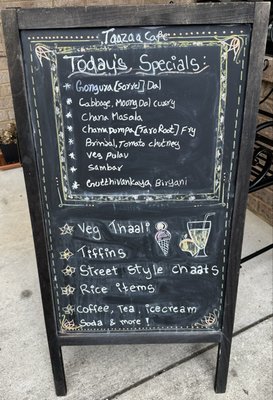 Taazaa Cafe
Today's Specials:
Gongura [Sorrel] Dal
Cabbage, Moong Dal curry
Chana Masala
Chamadumpa [Taro Root] Fry
Brinjal, Tomato chutney
Veg pulav
Sambar
Gutthivankaya Biryani
Veg Thaali
Tiffins
Street style chaats
Rice items
Coffee, Tea, icecream
Soda & more!